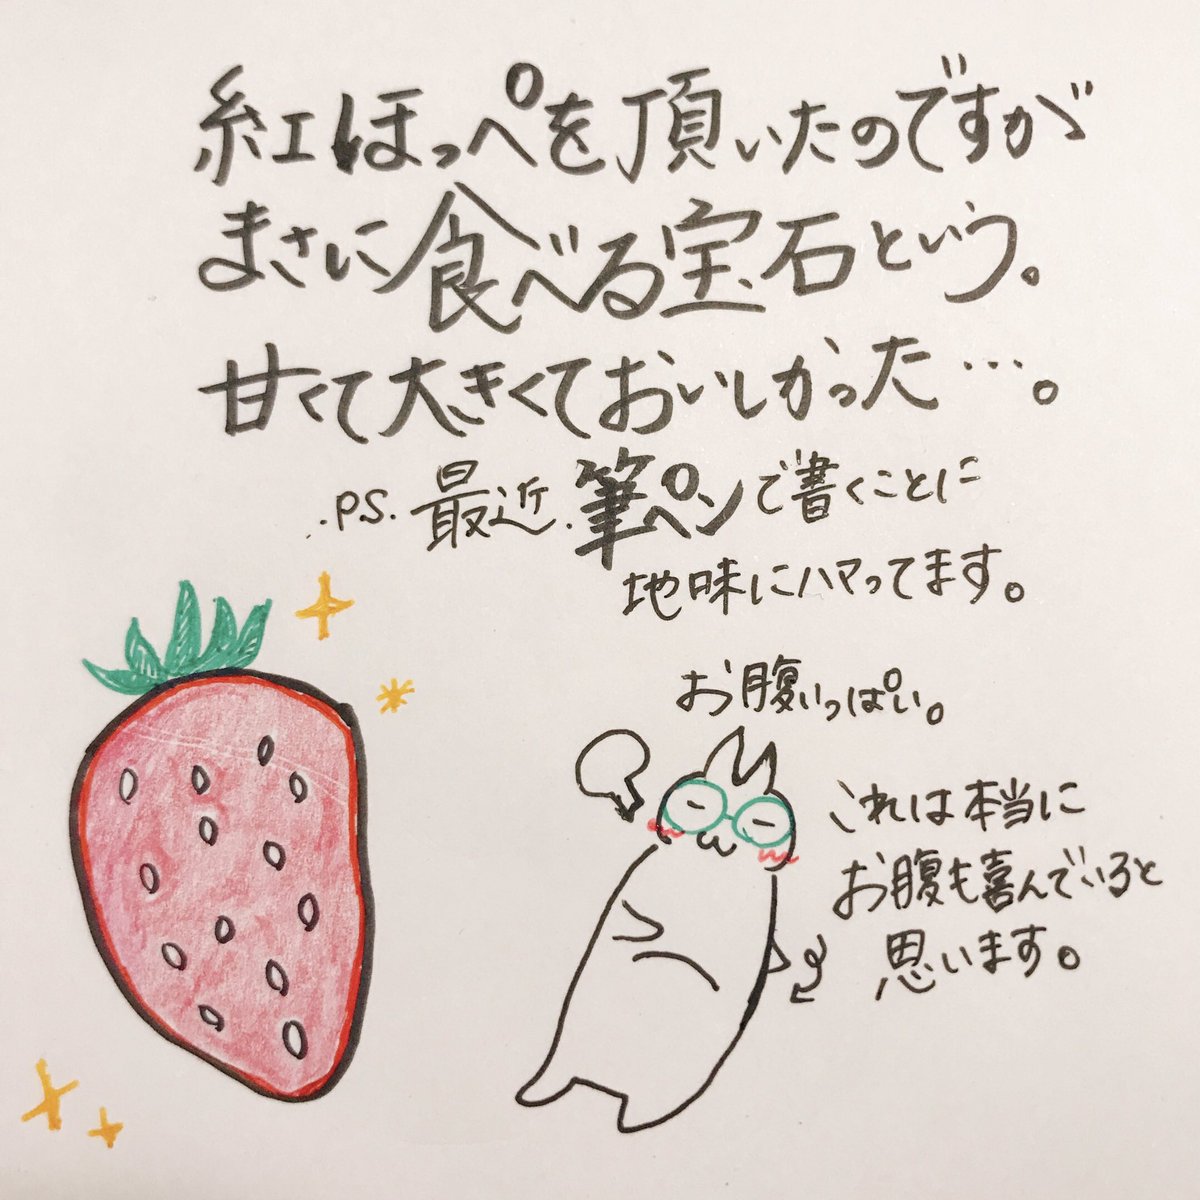 紅ほっぺを頂いたのですが
まさに食べる宝石という。
甘くて大きくておいしかった…。
.P.S. 最近.筆ペンで書くことに
地味にハマってます。
お腹いっぱい。
これは本当に
お腹も喜んでいると
思います。